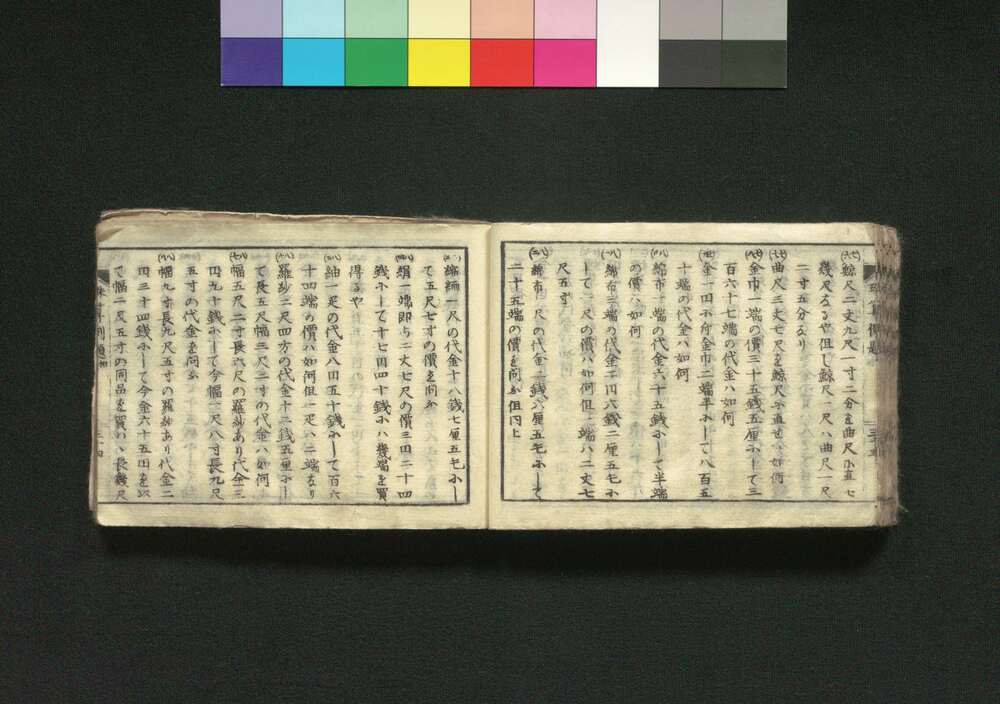 鯨尺二丈九尺一寸二分を曲尺ニ直セ
幾尺なるや但し鯨尺一尺ハ曲尺一尺
二寸五分なり
曲尺三丈七尺を鯨尺ニ直せハ如何
金巾一端の價三十五銭五厘ニして三
百六十七端の代金ハ如何
金一円ニ付金巾二端半ニして八百五
十端の代金ハ如何
綿布一端の代金六十五銭ニして半端
の價ハ如何
綿布三端の代金二円六銭二厘五毛ニ
して一尺の價ハ如何但一端ハ二丈七
尺五寸
綿布一尺の代金二銭六厘五毛ニして
二十五端の價を問ふ但同上
一尺の代金十八銭七厘五毛ニし
て五尺七寸の價を問ふ
絹一端即ち二丈七尺の價三円二十四
銭ニして十七円四十銭ニハ幾端を買
得るや
紬一疋の代金八円五十銭ニして百六
十四端の價ハ如何但一疋ハ二端なり
羅紗二尺四方の代金十二銭五厘ニし
て長五尺幅三尺二寸の代金ハ如何
幅五尺二寸長六尺の羅紗あり代金三
円九十銭ニして今幅一尺八寸長九尺
五寸の代金を問ふ
幅九寸長九尺五寸の羅紗あり代金二
円三十四銭ニして今金六十五円を以
て幅二尺五寸の同品を買ハヽ長幾尺